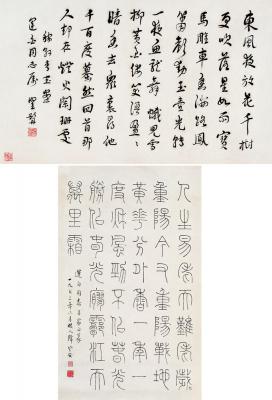 東風夜放花千樹
更吹落星如雨寶
馬雕車香滿路鳳
簫聲動玉壺光轉
一夜魚龍舞蛾兒雪
柳黃金縷笑語盈盈
暗香去衆裏尋他
千百度驀然回首那
人卻在燈火闌珊處
稼軒青玉案
同志屬
人生易老天難老歲
歲重陽今又重陽戰地
黃花分外香一年一
度秋風勁不似春光
勝似春光寥廓江天
萬里霜